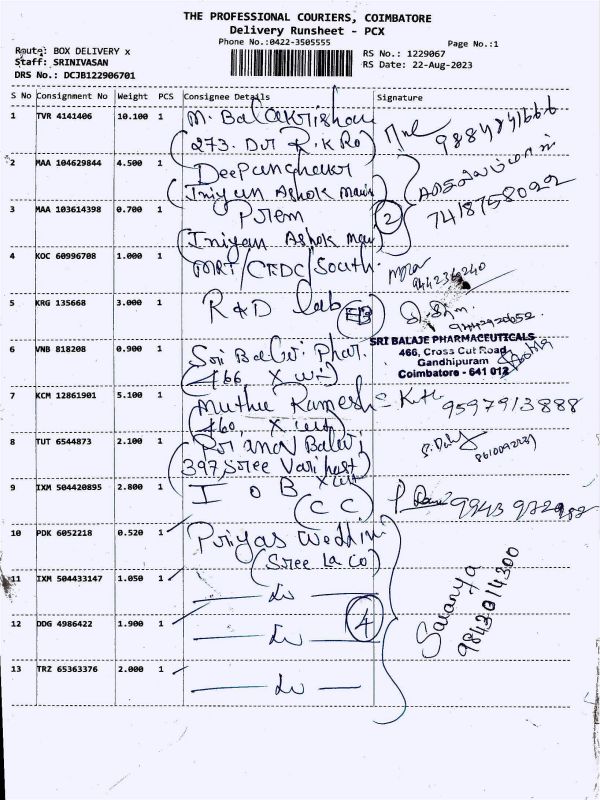 THE PROFESSIONAL COURIERS, COIMBATORE
Delivery Runsheet - PCX
Phone No.:0422-3505555
Page No.:1
Route: BOX DELIVERY x
Staff: SRINIVASAN
DRS No.: DCJB122906701
RS No.: 1229067
RS Date: 22-Aug-2023
S No Consignment No Weight PCS Consignee Details Signature
1 TVR 4141406 10.100 1 M. Balakrishan
(273. Dr R.K Ro)
2 MAA 104629844 4.500 1
(Iniyan Ashok
3 MAA 103614398 0.700 1 Prem 2
(Iniyan Ashok
7418758022
4 KOC 60996708 1.000 1 MRT/CEDC/South.
5 KRG 135668 3.000 1 R & D lab
6 VNB 818208 0.900 1 Sri Balaji Phar.
(466, X
SRI BALAJE PHARMACEUTICALS
466, Cross Cut Road
Gandhipuram
Coimbatore - 641 012
7 KCM 12861901 5.100 1 Muthu Ramesh
(460, X
9597913888
8 TUT 6544873 2.100 1
397, Sree
9 IXM 504420895 2.800 1 I O B
(C C)
10 PDK 6052218 0.520 1 Priyas Weddin
(Sree La Co)
11 IXM 504433147 1.050 1
12 DDG 4986422 1.900 1 4
13 TRZ 65363376 2.000 1
Saranya
9843014300